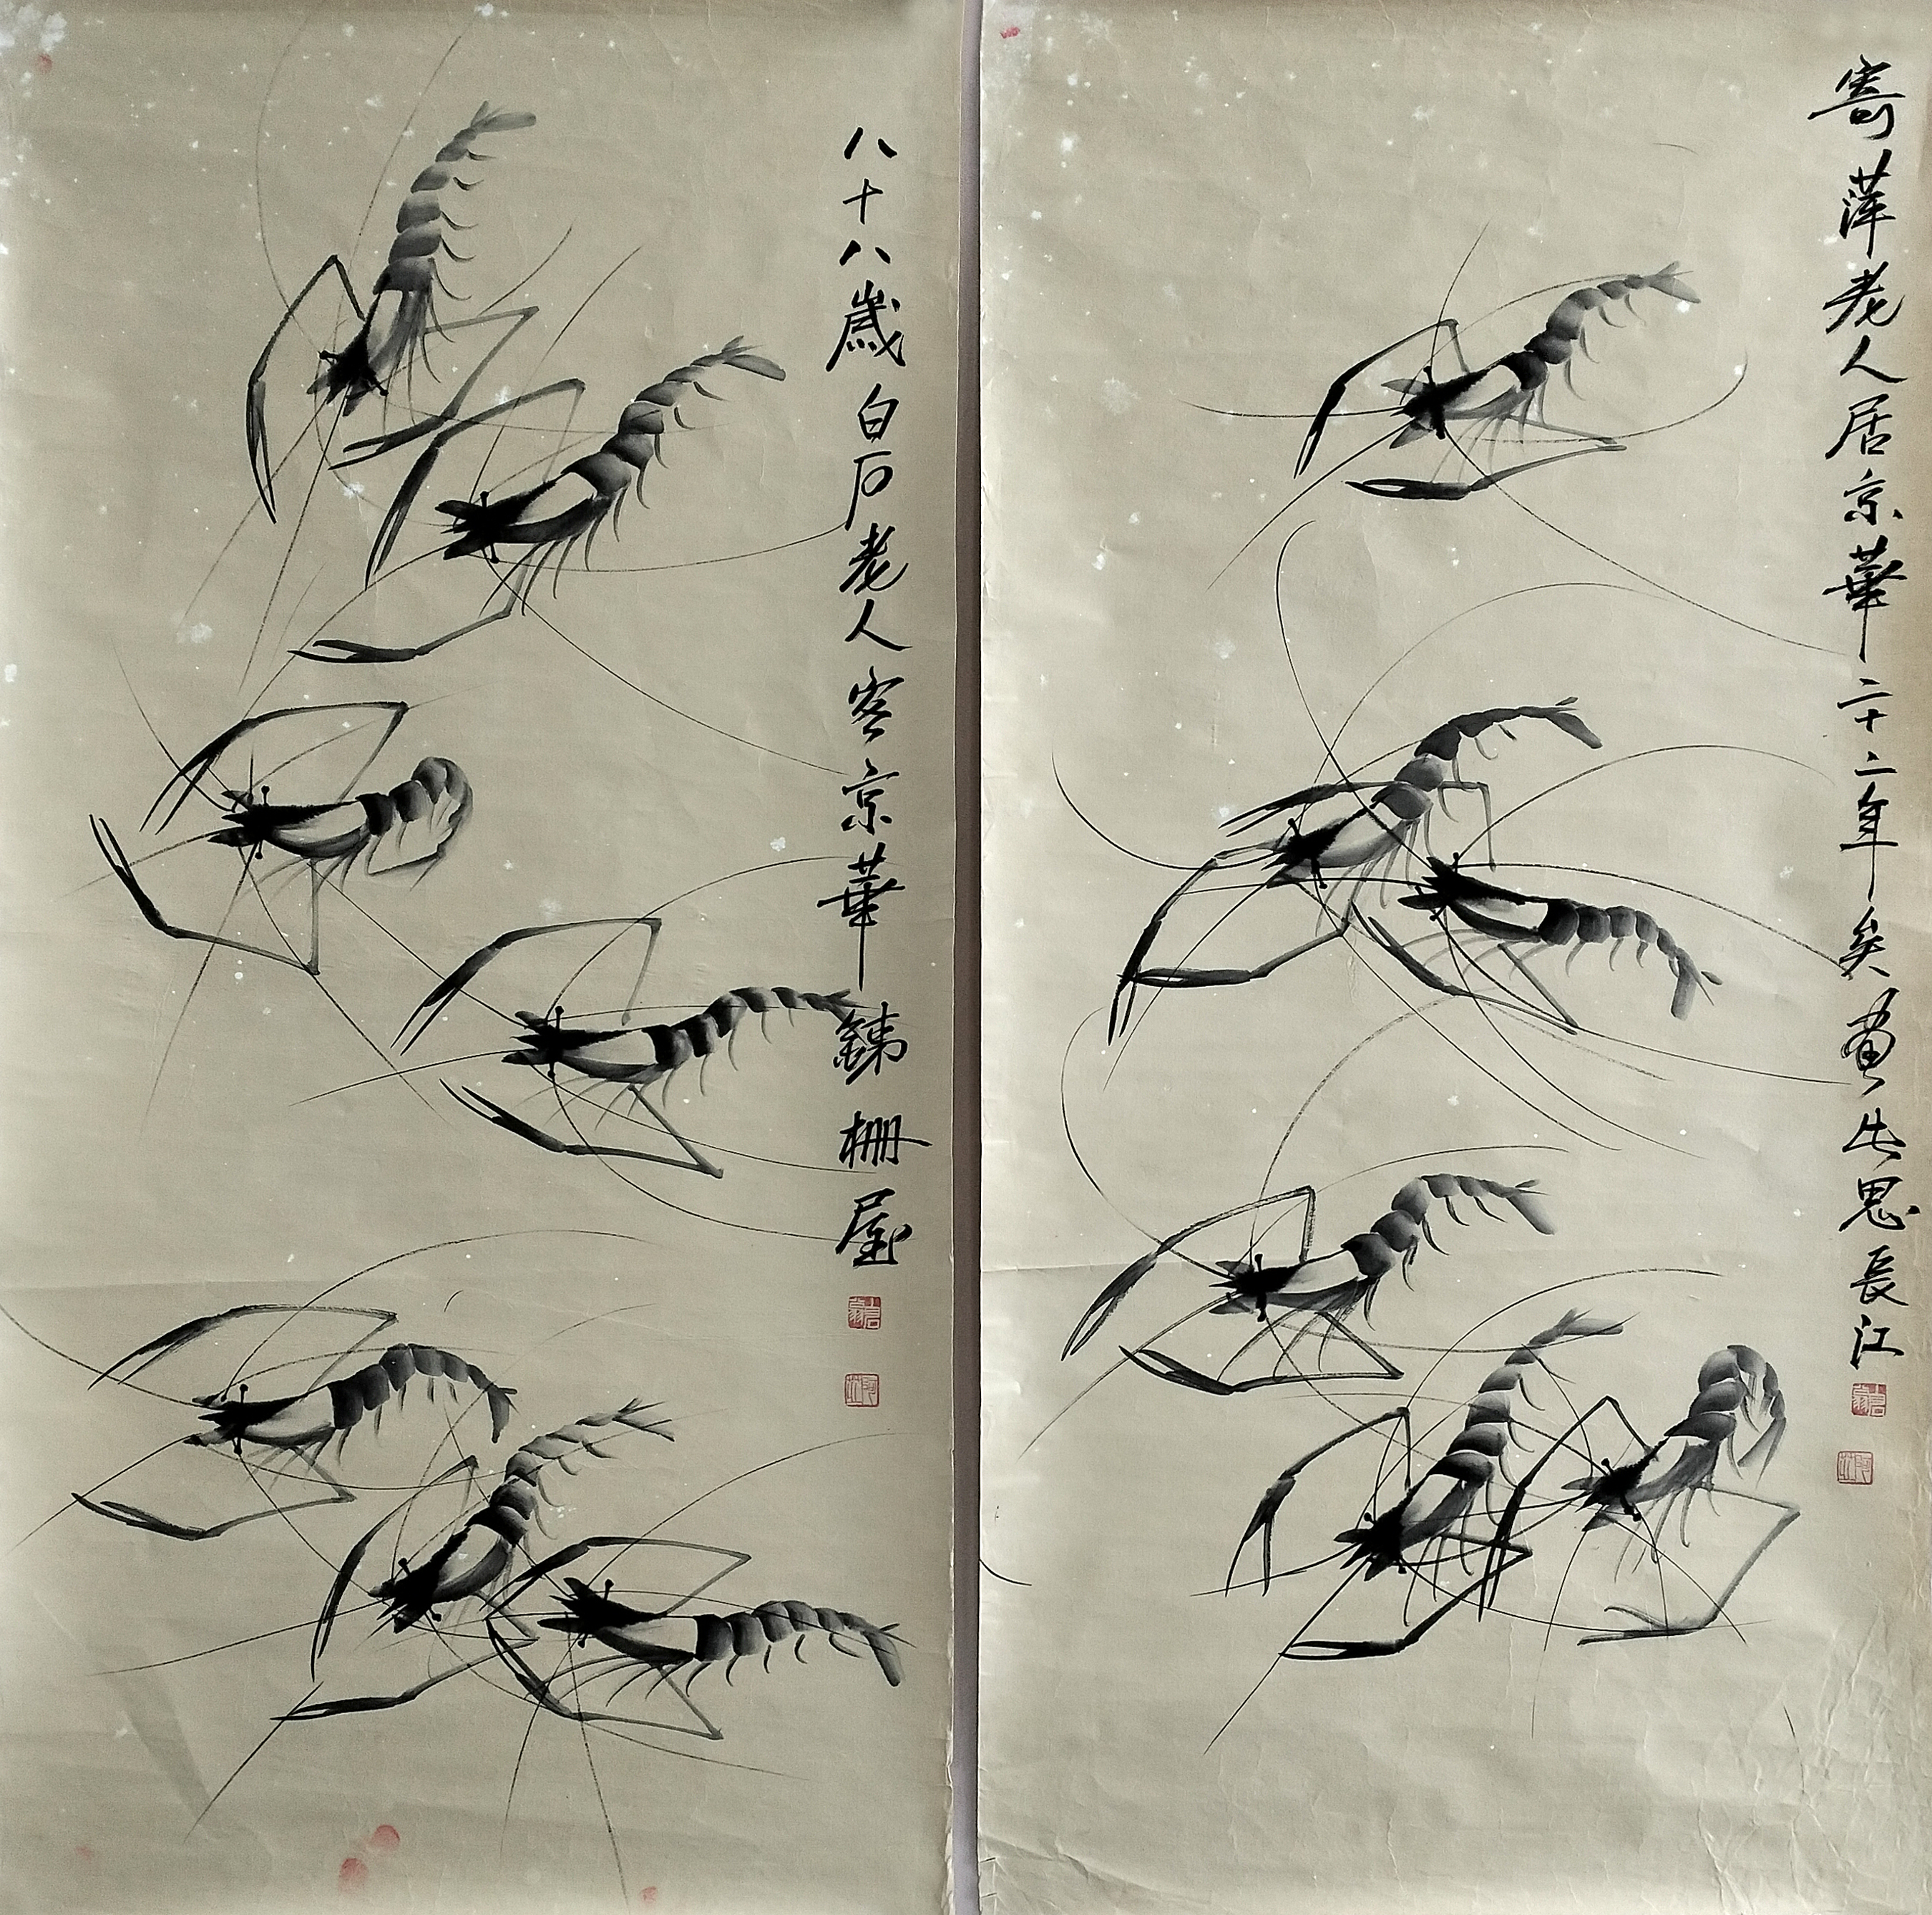 寄萍老人居京華二十二年矣畫此思長江
八十八歲白石老人客京華銕柵屋